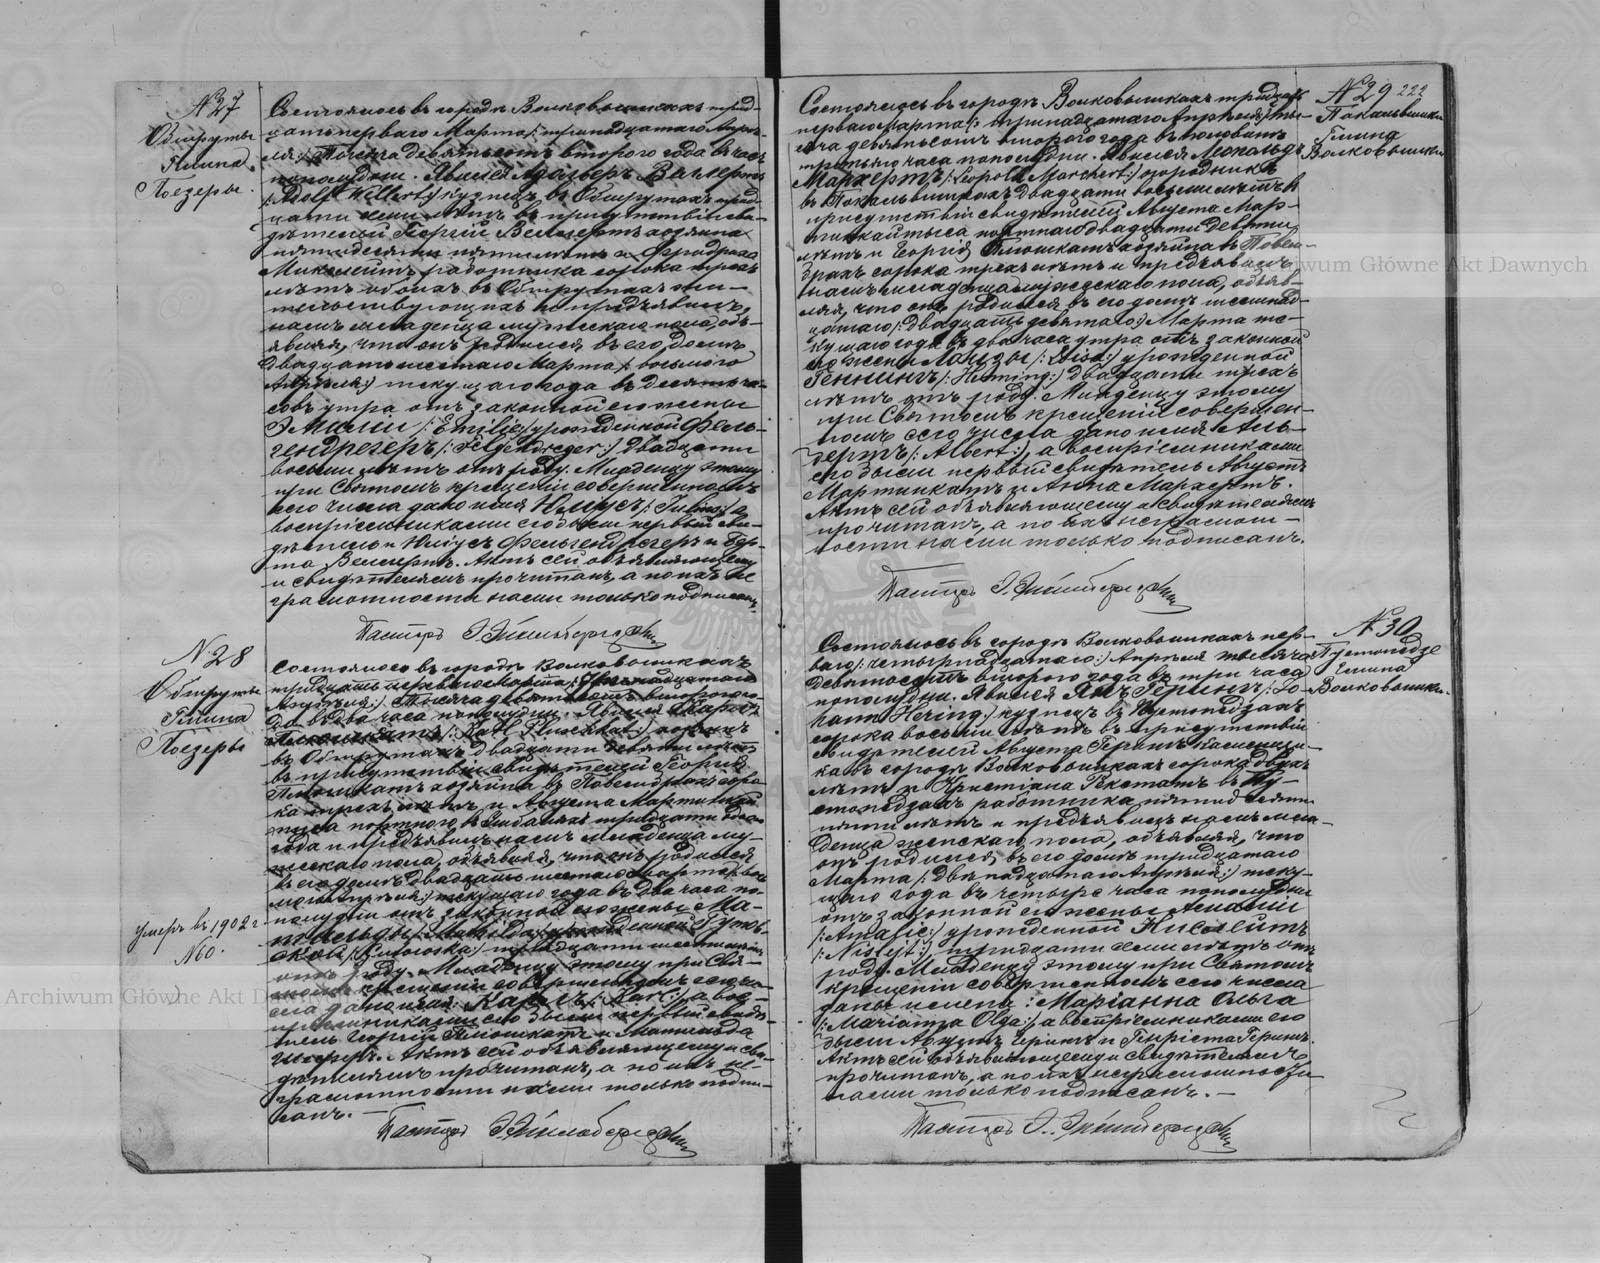 № 27
Обшруты
Гмина
Поезеры.
Состоялось въ городѣ Волковышкахъ трид-
цать перваго Марта /: тринадцатаго Апрѣ-
ля :/ Тысяча девятьсотъ второго года въ часъ
пополудни. Явился Адольфъ Виллертъ
/: Adolf Willert :/ кузнецъ въ Обшрутахъ трид-
цати семи лѣтъ въ присутствіи сви-
дѣтелей Георгій Виллертъ хозяина
пятидесяти пяти лѣтъ и Фридриха
Миклейтъ работника сорока трехъ
лѣтъ обоихъ въ Обшрутахъ жи-
тельствующихъ и предъявилъ
намъ младенца мужескаго пола, объ-
являя, что онъ родился въ его домѣ
двадцать шестаго Марта /: восьмого
Апрѣля :/ текущаго года въ десять ча-
совъ утра отъ законной его жены
Эмиліи /: Emilie :/ урожденной Фель-
гендрегеръ /: Felgendreger :/ двадцати
восьми лѣтъ отъ роду. Младенцу этому
при Святомъ крещеніи совершенномъ
сего числа дано имя Юліусъ /: Julius :/ а
воспріемниками его были первый сви-
дѣтель и Юліусъ Фельгендрегеръ и Бер-
та Виллертъ. Актъ сей объявляющему
и свидѣтелямъ прочитанъ, а по ихъ не
грамотности нами только подписанъ.
Пасторъ
№ 28
Обшруты
Гмина
Поезеры
умеръ въ 1902 г.
№ 60.
Состоялось въ городѣ Волковышкахъ
тридцать перваго Марта /: Тринадцатаго
Апрѣля :/ Тысяча девятьсотъ второго го-
да въ два часа пополудни. Явился Карлъ
Плюшкатъ /: Karl Pluschkat :/
въ Обшрутахъ двадцати девяти лѣтъ
въ присутствіи свидѣтелей Георгія
Плюшкатъ хозяина въ Повендрахъ соро-
ка трехъ лѣтъ и Августа Мартинкай-
тиса портного въ тридцати одно-
го года и предъявилъ намъ младенца му-
жескаго пола, объявляя, что онъ родился
въ его домѣ двадцать шестаго Марта /: вось-
мого Апрѣля :/ текущаго года въ два часа по-
полудни отъ законной его жены Ма-
тильды /: Mathilda :/ урожденной Гутов-
ской /: Gutowska :/ тридцати шести лѣтъ
отъ роду. Младенцу этому при Свя-
томъ крещеніи совершенномъ сего чи-
сла дано имя: Карлъ /: Karl :/, а вос-
пріемниками его были первый свидѣ-
тель Георгій Плюшкатъ и Матильда
Актъ сей объявляющему и сви-
дѣтелямъ прочитанъ, а по ихъ не-
грамотности нами только подпи-
санъ. —
Пасторъ
№ 29 222
Гмина
Волковышки
Состоялось въ городѣ Волковышкахъ тридцать
перваго Марта /: тринадцатаго Апрѣля :/ ты-
сяча девятьсотъ второго года въ половинѣ
третьяго часа пополудни. Явился Леопольдъ
Мархертъ /: Leopold Marchert :/ огородникъ
въ двадцати восьми лѣтъ въ
присутствіи свидѣтелей Августа Мар-
тинкайтыса портнаго двадцати девяти
лѣтъ и Георгія Плюшкатъ хозяина въ Повен-
драхъ сорока трехъ лѣтъ и предъявилъ
намъ младенца мужескаго пола, объяв-
ляя, что онъ родился въ его домѣ шестнад-
цатаго /: двадцать девятаго :/ Марта те-
кущаго года въ два часа утра отъ законной
его жены Луизы урожденной
Геннингъ /: Henning :/ двадцати трехъ
лѣтъ отъ роду. Младенцу этому
при Святомъ крещеніи совершен-
номъ сего числа дано имя Аль-
бертъ /: Albert :/, а воспріемниками
его были первый свидѣтель Августъ
Мартинкатъ и Анна Мархертъ.
Актъ сей объявляющему и свидѣтелямъ
прочитанъ, а по ихъ неграмот-
ности нами только подписанъ.
Пасторъ
№ 30
Пустопедзе
Гмина
Волковышки.
Состоялось въ городѣ Волковышкахъ пер-
ваго /: четырнадцатаго :/ Апрѣля тысяча
девятьсотъ второго года въ три часа
пополудни. Явился Янъ Герингъ /: Jo-
hann Hering :/ кузнецъ въ Пустопедзахъ
сорока восьми лѣтъ въ присутствіи
свидѣтелей Августа Герингъ каменщи-
ка въ городѣ Волковышкахъ сорока двухъ
лѣтъ и Христіана Гекстатъ въ Пу-
стопедзахъ работника пятидесяти
пяти лѣтъ и предъявилъ намъ мла-
денца женскаго пола, объявляя, что
онъ родился въ его домѣ тридцатаго
Марта /: двѣнадцатаго Апрѣля :/ теку-
щаго года въ четыре часа пополудни
отъ законной его жены Амаліи
/: Amalie :/ урожденной Нислейтъ
/: Nislejt :/ тридцати семи лѣтъ отъ
роду. Младенцу этому при Святомъ
крещеніи совершенномъ сего числа
даны имена: Маріанна Ольга
/: Marianna Olga :/, а воспріемниками его
были Августъ Герингъ и Герингъ.
Актъ сей объявляющему и свидѣтелямъ
прочитанъ, а по ихъ неграмотности
нами только подписанъ. —
Пасторъ
Archiwum Główne Akt Dawnych
Archiwum Główne Akt Dawnych